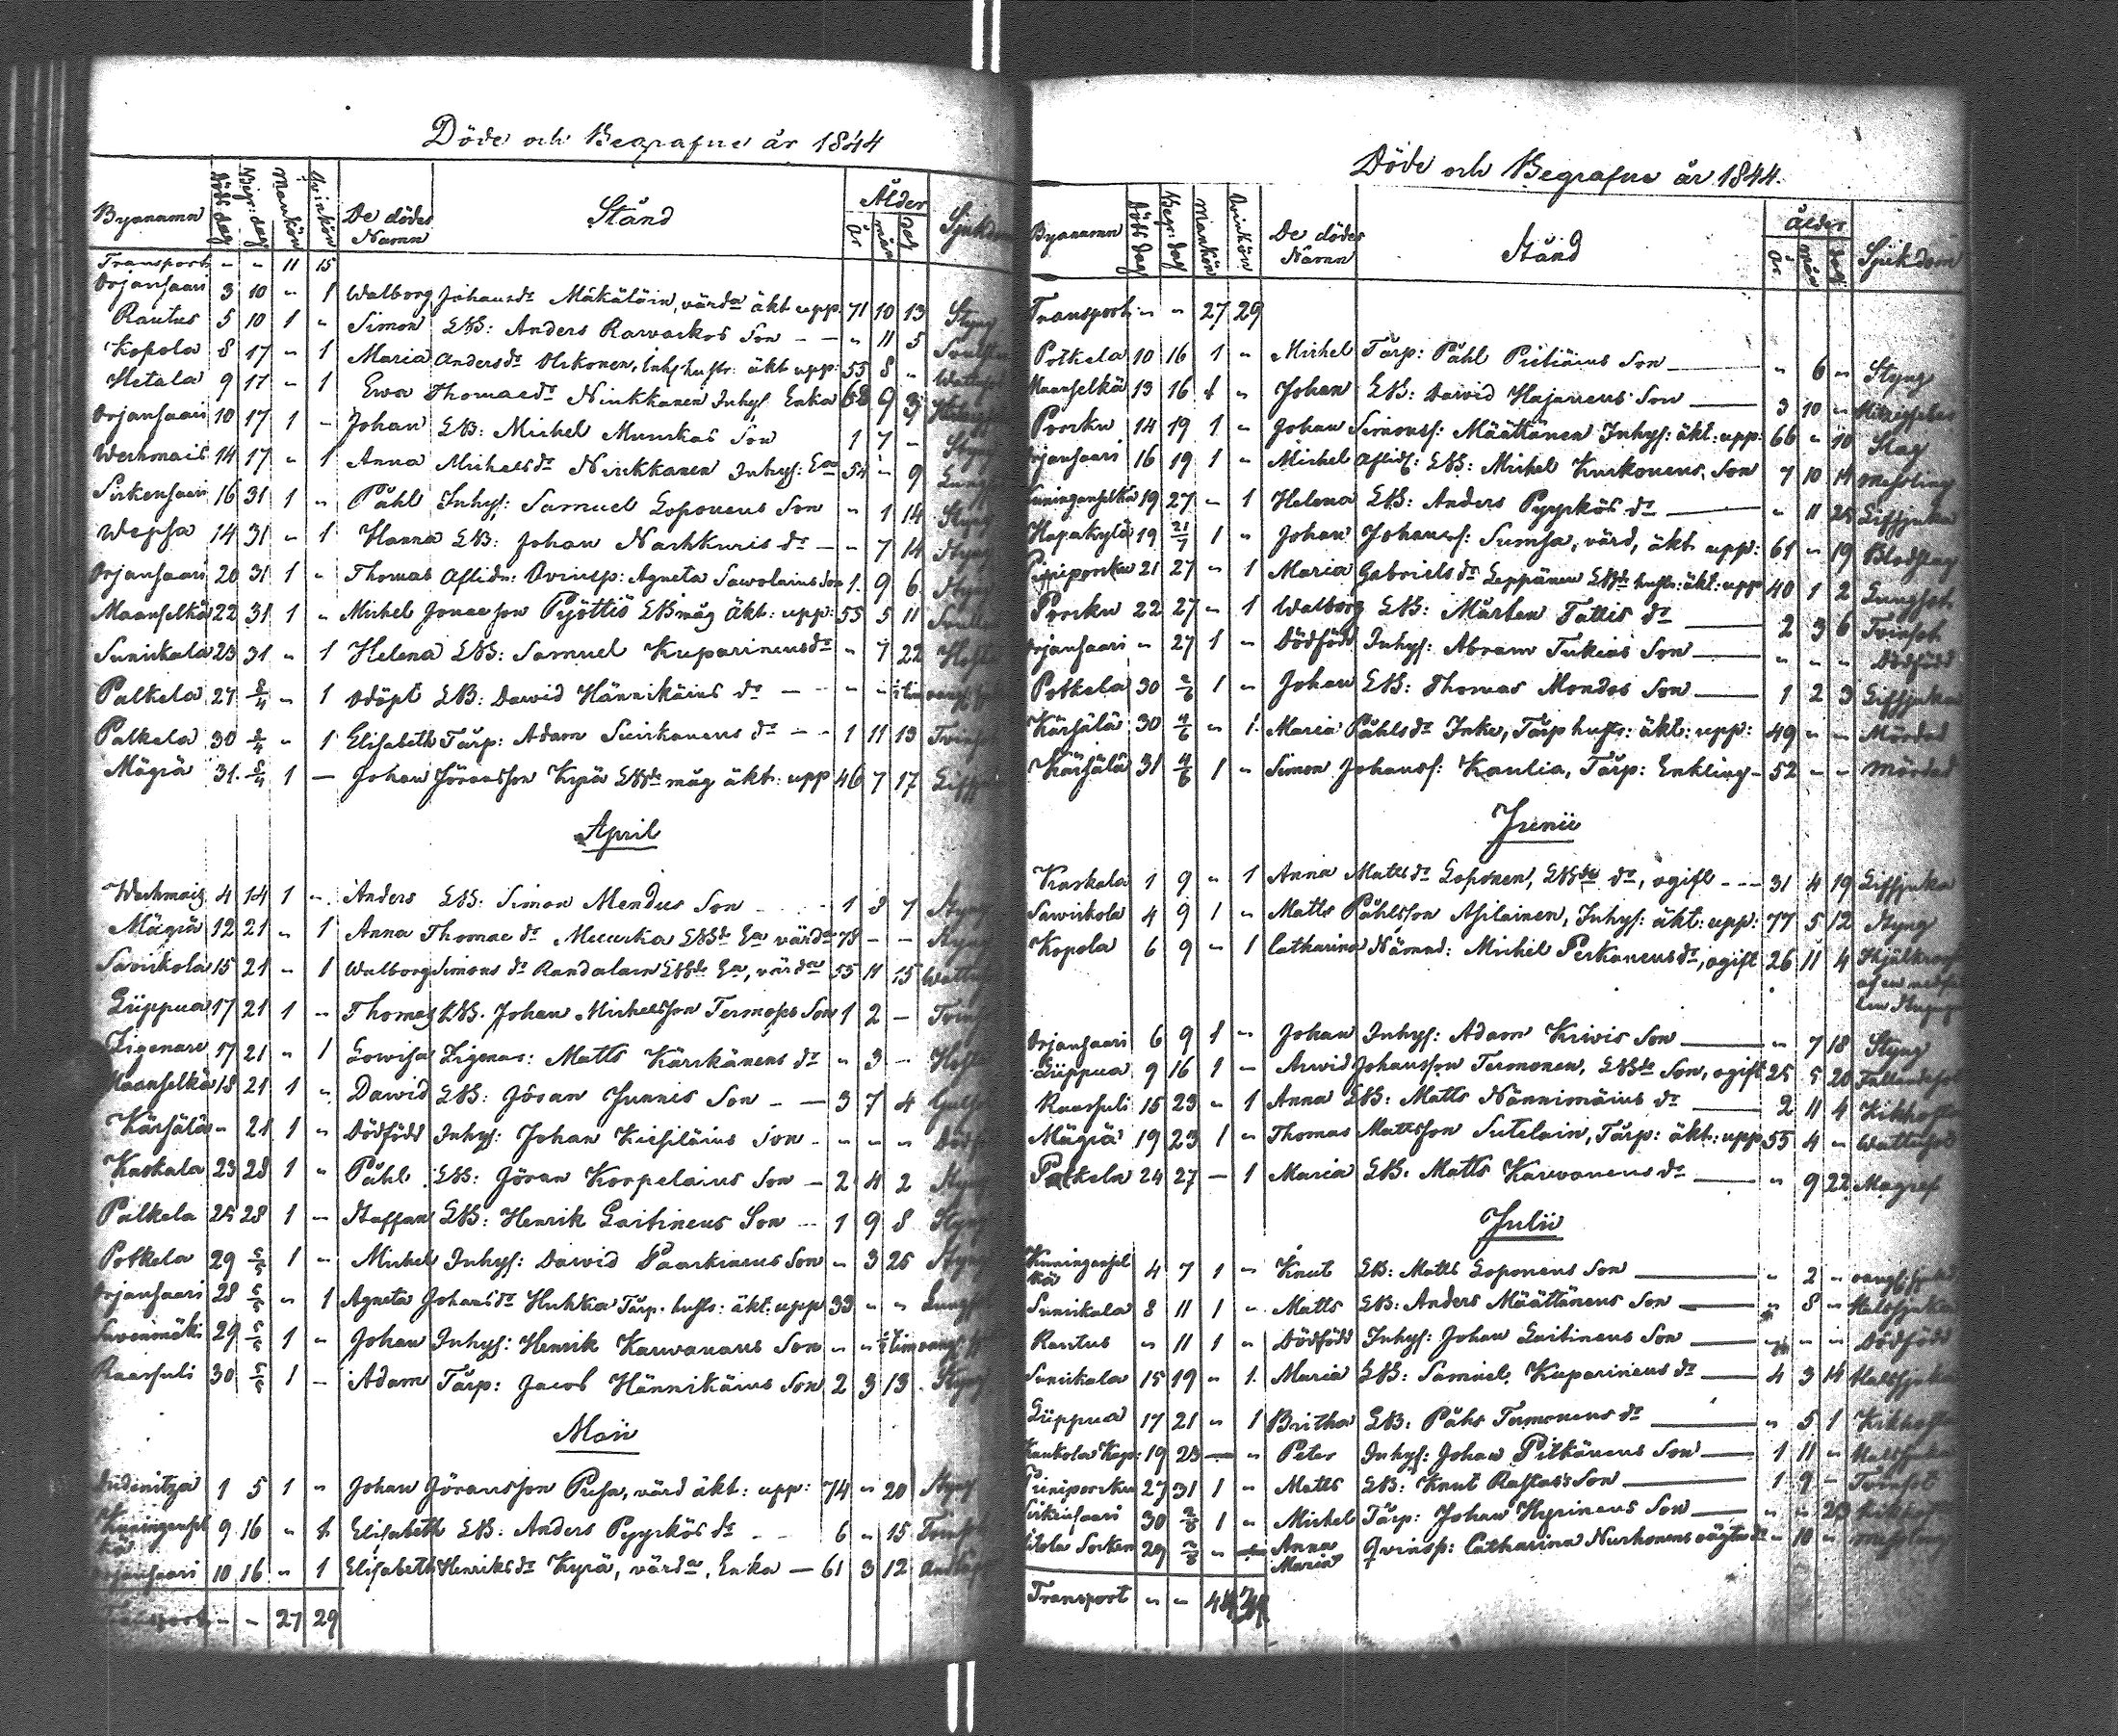 Döde och Begrafne år 1844
Byanamn Döds dag Begr: dag Mankön Qvinkön De dödes Namn Stånd Ålder år mån dag Sjukdom
Transport " " 11 15
Orjansaari 3 10 " 1 Walborg Johansdr Mäkäläin, värda äkt upp. 71 10 13 Styng
Rautus 5 10 1 " Simon LB: Anders Rawaskos Son - - " 11 5
Kopola 8 17 " 1 Maria Andersdr Olikonen, Inh: hustr: äkt upp: 55 8 "
Hetala 9 17 " 1 Ewa Thomaedr Ninkkanen Inhys Enka 68 9 3
Orjansaari 10 17 1 - Johan LB: Michel Munckas Son 1 7 - Styng
Wechmais 14 17 " 1 Anna Michelsdr Ninkkanen Inhys: Ea 54 " 9
Sirkensaari 16 31 1 " Påhl Inhys: Samuel Loponens Son " 1 14 Styng
Wepsa 14 31 " 1 Hanna LB: Johan Naskkuris dr - " 7 14 Styng
Orjansaari 20 31 1 " Thomas Aflidn: Qvinsp: Agneta Sawolains Son 1 9 6 Styng
Maanselkä 22 31 1 " Michel Jonaeson Pyöttiö LBmåg äkt: upp: 55 5 11
Sunikala 23 31 " 1 Helena LB: Samuel Kuparinens dr " 7 22
Palkela 27 2/4 " 1 Odöpt LB: Dawid Hännikäins dr - " " 1/2 tim
Palkela 30 5/4 " 1 Elisabeth Tårp: Adam Suikanens dr - - 1 11 13 Tvinsot
Mägrä 31 5/4 1 - Johan Jöransson Kyrä LBds måg äkt: upp 46 7 17
April
Wechmais 4 14 1 " Anders LB: Simon Mendus Son 1 3 7 Styng
Mägrä 12 21 " 1 Anna Thomae dr Muurka LBds Ea värda 78 - - Styng
Saviskola 15 21 " 1 Walborg Simons dr Randalain LBds Ea, värda 55 11 15
Lüppua 17 21 1 " Thomas LB. Johan Michelsson Termoses Son 1 2 - Tvinsot
Zigenare 17 21 " 1 Lowisa Zigenar: Matts Kärkkänens dr " 3 -
Maanselkä 18 21 1 " Dawid LB: Jöran Junnis Son - - 3 7 4
Kärsälä " 21 1 " Dödfödd Inhys: Johan Kiesiläins Son - " " " Dödf
Kaskala 23 28 1 " Påhl LB: Jöran Korpelains Son - 2 4 2 Styng
Palkela 25 28 1 " Staffan LB: Henrik Laitinens Son - 1 9 8 Styng
Potkela 29 5/5 1 " Michel Inhys: Dawid Paaskinens Son " 3 25 Styng
Orjansaari 28 5/5 " 1 Agneta Johansdr Huhka Tårp. hustr: äkt: upp 33 " "
Savenmäki 29 5/5 1 " Johan Inhys: Henrik Karwanans Son " " 1/2 tim
Raasuli 30 5/5 1 - Adam Tårp: Jacob Hännikäins Son 2 3 13 Styng
Maii
1 5 1 " Johan Jöransson Pusa, värd äkt: upp: 74 " 20 Styng
9 16 " 1 Elisabeth LB: Anders Pyykös dr - 6 " 15 Tvinsot
Orjansaari 10 16 " 1 Elisabeth Henriksdr Kyrä, värda, Enka - 61 3 12
Transport " - 27 29
Döde och Begrafne år 1844.
Byanamn Döds dag Begr: dag Mankön Qvinkön De dödes Namn Stånd Ålder år mån dag Sjukdom
Transport " " 27 29
Potkela 10 16 1 " Michel Tårp: Påhl Pietiäins Son " 6 " Styng
Maanselkä 13 16 1 " Johan LB: Dawid Hajanens Son 3 10 "
Porsku 14 19 1 " Johan Simonss: Määttänen Inhys: äkt: upp: 66 " 10 Slag
Orjansaari 16 19 1 " Michel Aflid: LB: Michel Kurkonens Son 7 10 14 Messling
Kuningenselkä 19 27 " 1 Helena LB: Anders Pyykös dr " 11 25 Giftsjuka
Hapakylä 19 21/7 1 " Johan Johanss: Sumsa, värd, äkt upp: 61 " 19 Blodslag
21 27 " 1 Maria Gabrielsdr Leppänen LBds hustr: äkt: upp 40 1 2 Lungsot
Porsku 22 27 " 1 Walborg LB: Mårten Tattis dr 2 3 6 Tvinsot
Orjansaari " 27 1 " Dödfödd Inhys: Abram Tukias Son " " " Dödfödd
Potkela 30 2/6 1 " Johan LB: Thomas Mondos Son 1 2 3 Giftsjuka
Kärsälä 30 4/6 " 1. Maria Påhlsdr Inke, Tårp hustr: äkt: upp: 49 " " Mördad
Kärsälä 31 4/6 1 " Simon Johanss: Kaulia, Tårp: Enkling - 52 " " Mördad
Junii
Kaskala 1 9 " 1 Anna Mattsdr Loponen, LBds dr, ogift - - 31 4 19 Giftsjuka
Sawiskola 4 9 1 " Matts Påhlsson Asilainen, Inhys: äkt: upp: 77 5 12 Styng
Kopola 6 9 " 1 Catharina Nämnd: Michel Peskanens dr, ogift 26 11 4
Orjansaari 6 9 1 " Johan Inhys: Adam Kiwis Son " 7 18 Styng
Lüppua 9 16 1 - Arvid Johansson Termonen, LBds Son, ogift 25 5 20 Fallandesot
Raasuli 15 23 " 1 Anna LB: Matts Nännimäins dr 2 11 4 Kikhosta
Mägrä 19 23 1 " Thomas Mattsson Sutelain, Tårp: äkt: upp 55 4 " Wattusot
Palkela 24 27 - 1 Maria LB: Matts Karwanens dr " 9 22 Magref
Julii
Kuningensel
kä 4 7 1 " Knut LB: Matts Loponens Son " 2 "
Sunikala 8 11 1 " Matts LB: Anders Määttänens Son " 8 " Halssjuka
Rautus " 11 1 " Dödfödd Inhys: Johan Laitinens Son " " " Dödfödd
Sunikala 15 19 " 1. Maria LB: Samuel Kuparinens dr 4 3 14 Halssjuka
Lüppua 17 21 " 1 Britha LB: Påhs Termonens dr " 5 1 Kikhosta
Kaukola Kap: 19 23 - " Peter Inhys: Johan Pitkänens Son 1 11 " Halssjuka
27 31 1 " Matts LB: Knut Rastas's Son 1 9 - Tvinsot
30 2/8 1 " Michel Tårp: Johan Hyrinens Son " " 23 Kikhosta
Socken 29 2/8 " Anna Maria Qvinsp: Catharina Nurkonens oägta dr " 10 "
Transport " "